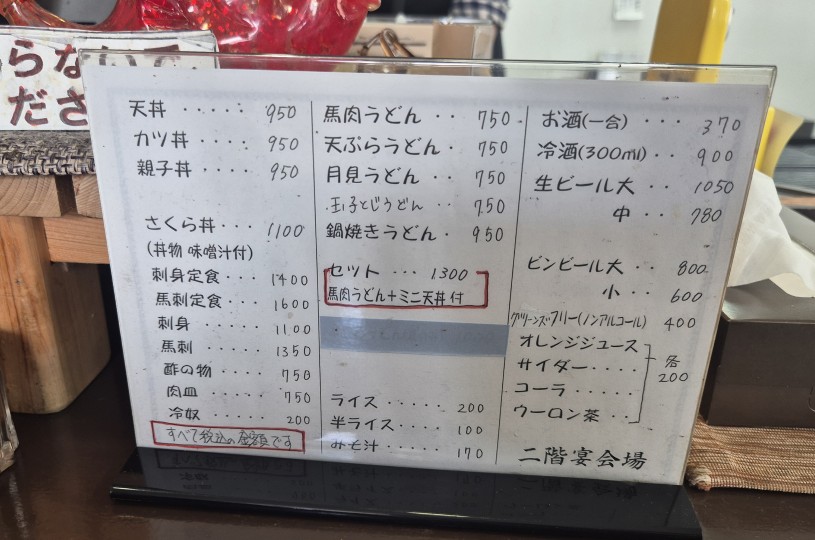 らないで
ださ
天丼 ····· 950
カツ丼 ···· 950
親子丼 ···· 950
さくら丼 ··· 1100
(丼物 味噌汁付)
刺身定食 ··· 1400
馬刺定食 ··· 1600
刺身 ····· 1100
馬刺 ····· 1350
酢の物 ···· 750
肉皿 ····· 750
冷奴 ····· 200
すべて税込の金額です
馬肉うどん ·· 750
天ぷらうどん · 750
月見うどん ·· 750
玉子とじうどん ·· 750
鍋焼きうどん · 950
セット ··· 1300
馬肉うどん+ミニ天丼付
ライス ····· 200
半ライス ···· 100
みそ汁 ····· 170
お酒(一合) ·· 370
冷酒(300ml) ·· 900
生ビール大 ·· 1050
中 ·· 780
ビンビール大 ·· 800
小 ·· 600
グリーンズフリー(ノンアルコール) 400
オレンジジュース
サイダー ····
コーラ ·····
ウーロン茶 ··
各
200
二階宴会場